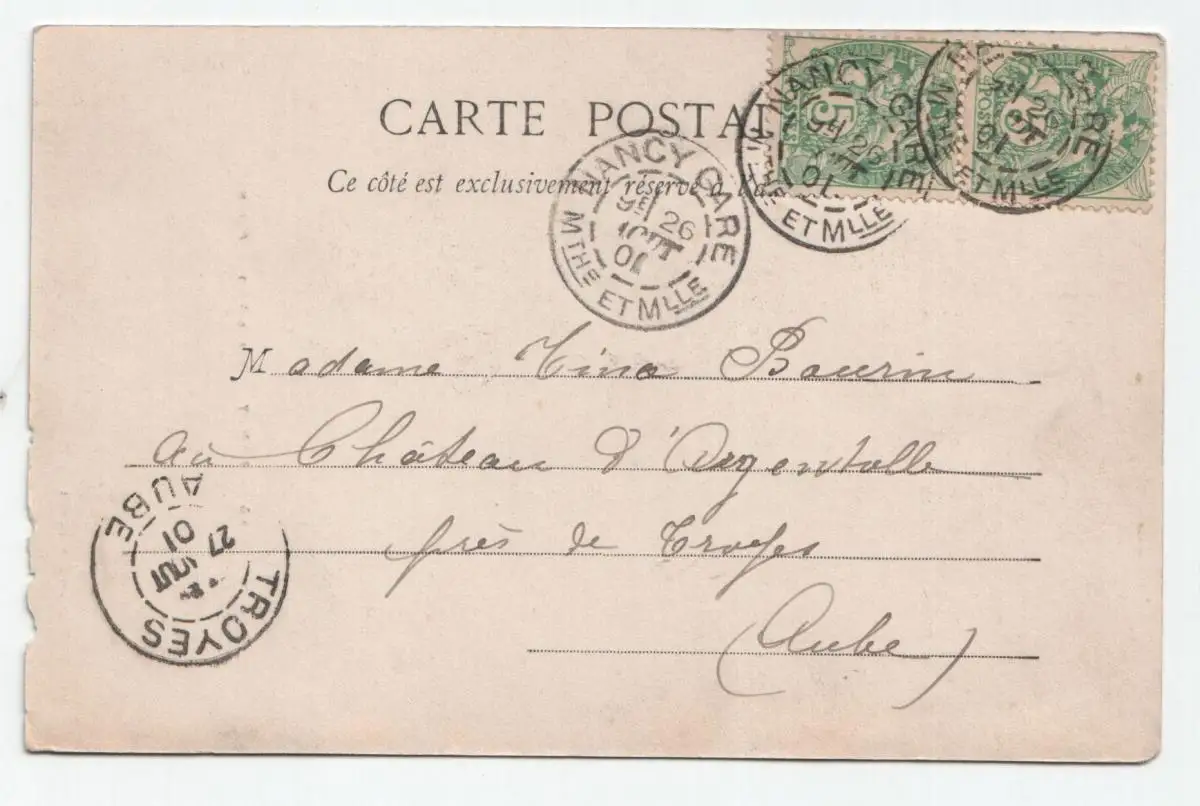 CARTE POSTA
Ce côté est exclusivement réservé à l'a
NANCY GARE
26
AOUT
01
MTHE ET MLLE
NANCY GARE
26
01
ET MLLE
5
GARE
26
01
MTHE ET MLLE
5
POSTES
Madame Tina Bourin
au Château d'Argentolle
près de Troyes
(Aube)
TROYES
AUBE
27
AOUT
01